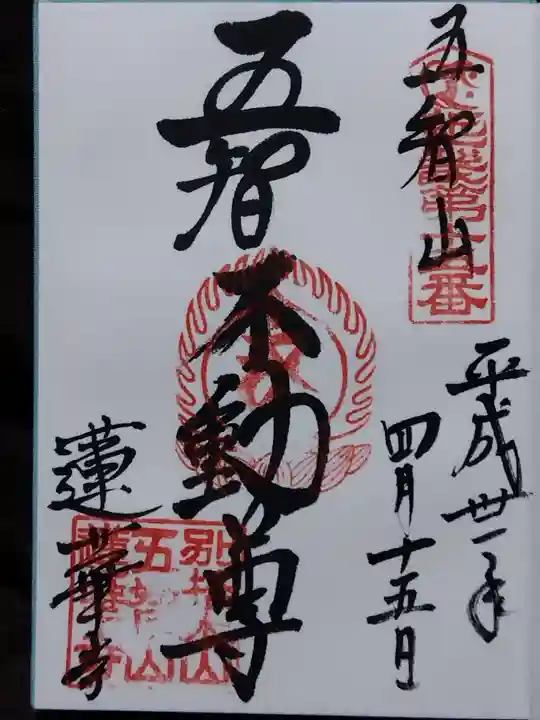 五智山
平成卅一年
四月十五日
五智不動尊
蓮華寺